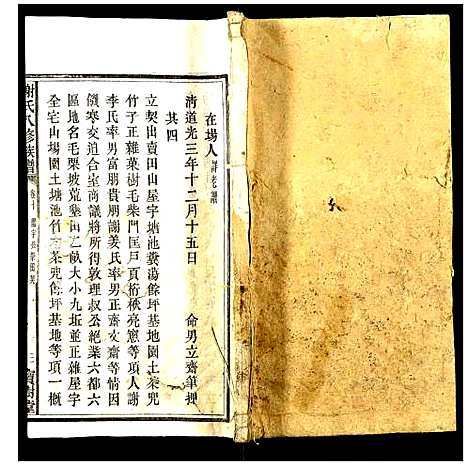 在場人
清道光三年十二月十五日 命男立齋筆押
其四
立契出賣田山屋宇塘池糞蕩餘坪基地園土茶兜
竹子正雜菓樹毛柴門匡戶頁枋楸亮窻等項人謝
李氏率男富朋貴朋謝姜氏率男正齋文齋等情因
饑寒交迫合室商議將所得敦理叔公絕業六都六
區地名毛栗坡荒墾田乙畝大小九坵並正雜屋宇
全宅山場園土塘池茶兜餘坪基地等項一概
謝氏八修族譜